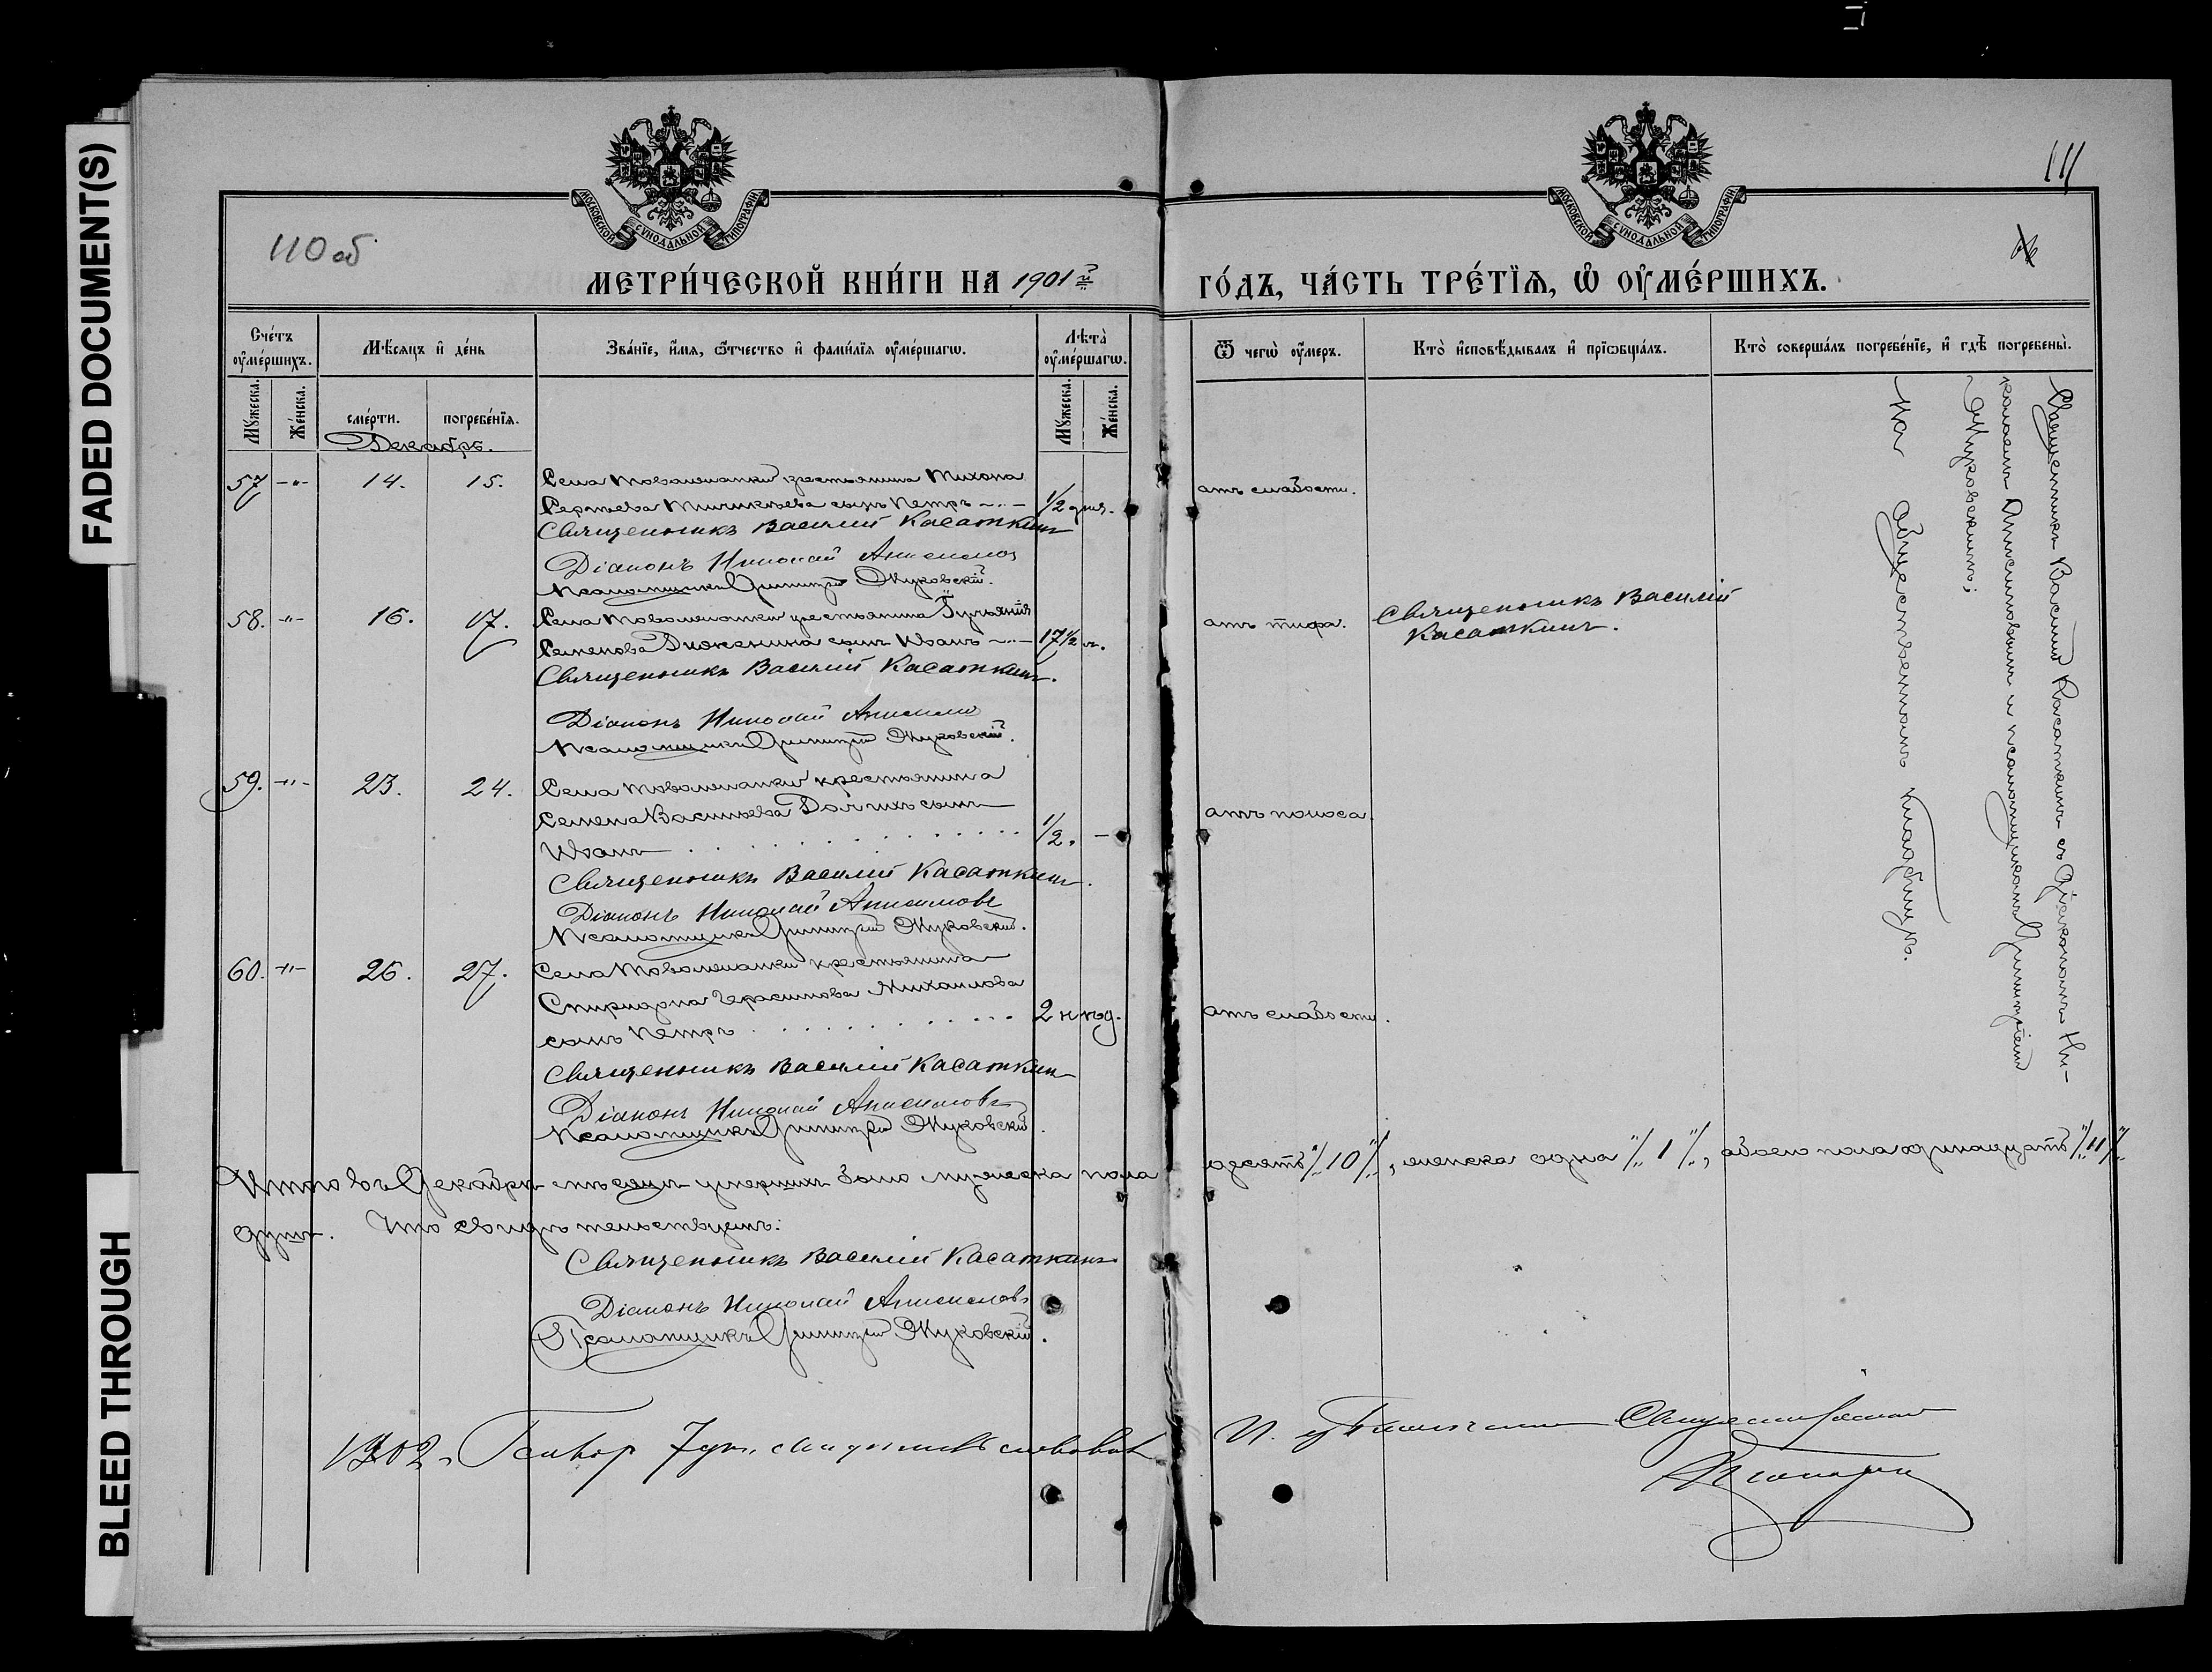 FADED DOCUMENT(S)
BLEED THROUGH
110 об
111
МОСКОВСКОЙ СУНОДАЛЬНОЙ ТИПОГРАФІИ
МОСКОВСКОЙ СУНОДАЛЬНОЙ ТИПОГРАФІИ
МЕТРИ́ЧЕСКОЙ КНИ́ГИ НА 1901й ГО́ДЪ, ЧА́СТЬ ТРЕ́ТЇѦ, Ѽ ОУ҆МЕ́РШИХЪ.
Сче́тъ оу҆ме́ршихъ.
Мѣ́сѧцъ и҆ де́нь
Зва́нїе, и҆́мѧ, ѻ҆́тчество и҆ фами́лїѧ оу҆ме́ршагѡ.
Лѣ́та оу҆ме́ршагѡ.
Ѿ чегѡ̀ оу҆́меръ.
Кто̀ и҆сповѣ́дывалъ и҆ прїѡбща́лъ.
Кто̀ соверша́лъ погребе́нїе, и҆ гдѣ̀ погребены̀.
Мꙋ́жеска. Же́нска. сме́рти. погребе́нїѧ. Мꙋ́жеска. Же́нска.
Декабрь.
57 -"- 14. 15. Села крестьянина Тихона
Сергѣева сынъ Петръ 1/2 дня. отъ слабости.
Священникъ Василій Касаткинъ
Діаконъ Николай Анисимовъ
Псаломщикъ Димитрій Жуковскій.
58. -"- 16. 17. Села крестьянина
Семенова сынъ Иванъ 17 1/2 л. отъ тифа. Священникъ Василій
Касаткинъ.
Священникъ Василій Касаткинъ.
Діаконъ Николай Анисимовъ
Псаломщикъ Димитрій Жуковскій.
59. -"- 23. 24. Села крестьянина
Семена Васильева сынъ
Иванъ 1/2. - отъ поноса.
Священникъ Василій Касаткинъ.
Діаконъ Николай Анисимовъ
Псаломщикъ Димитрій Жуковскій.
60. -"- 26. 27. Села крестьянина
Спиридона Герасимова Михайлова
сынъ Петръ 2 нед. отъ слабости.
Священникъ Василій Касаткинъ
Діаконъ Николай Анисимовъ
Псаломщикъ Димитрій Жуковскій.
Священникъ Василій Касаткинъ съ діакономъ Ни-
колаемъ Анисимовымъ и псаломщикомъ Димитріемъ
Жуковскимъ;
На общественномъ кладбищѣ.
Итого въ Декабрѣ мѣсяцѣ умершихъ было мужеска пола десять "/.. 10 "/.., женска одна "/.. 1 "/.., обоего пола одинадцать "/.. 11 "/..
душъ. Что свидѣтельствуемъ:
Священникъ Василій Касаткинъ
Діаконъ Николай Анисимовъ
Псаломщикъ Димитрій Жуковскій.
1902 г. Генвар 7 дн. свидѣтельствовалъ